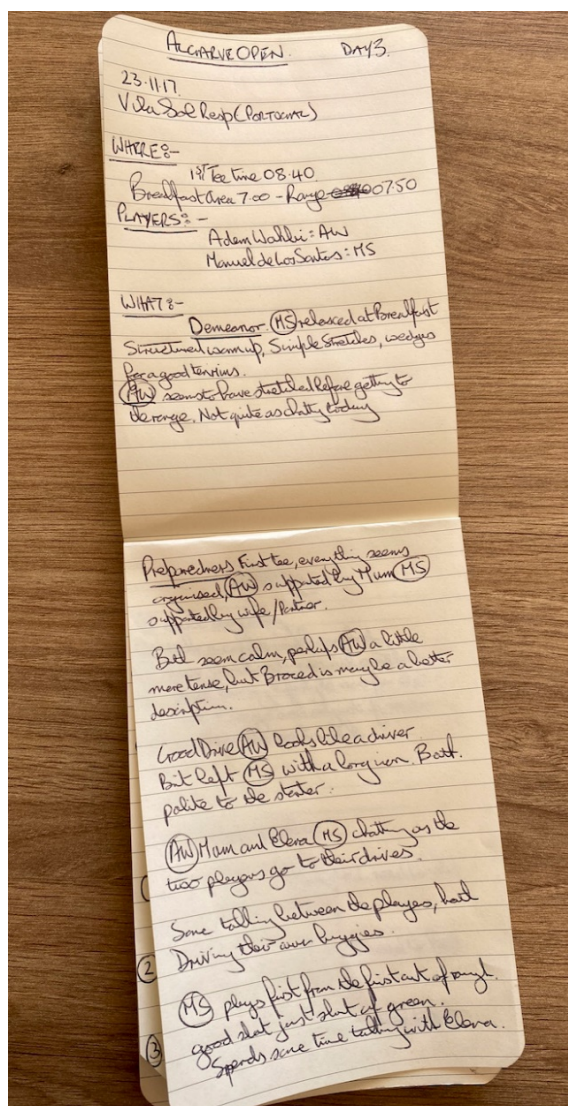 ALGARVE OPEN. DAY 3.
23.11.17
Vila Sol Resp (PORTUGAL)
WHERE:-
1st Tee time 08.40.
Breakfast area 7.00 - Range 07.50
PLAYERS:-
Adem Wahbi: AW
Manuel de Los Santos: MS
WHAT:-
Demeanor. MS relaxed at Breakfast
Structured warmup, Simple Stretches, wedges
for a good ten mins.
AW seems to have stretched before getting to
the range. Not quite as chatty today
Preparedness First tee, everything seems
organised, AW supported by Mum MS
supported by wife/Partner.
Both seem calm, perhaps AW a little
more tense, but Braced is maybe a better
description.
Good Drive AW looks like a driver
Bit left MS with a long iron. Both
polite to the starter.
AW Mum and Elena MS chatting as the
two players go to their drives.
Some talking between the players, both
Driving their own buggies.
MS plays first from the first cut of rough.
good shot just short of green.
Spends some time talking with Elena.
2
3